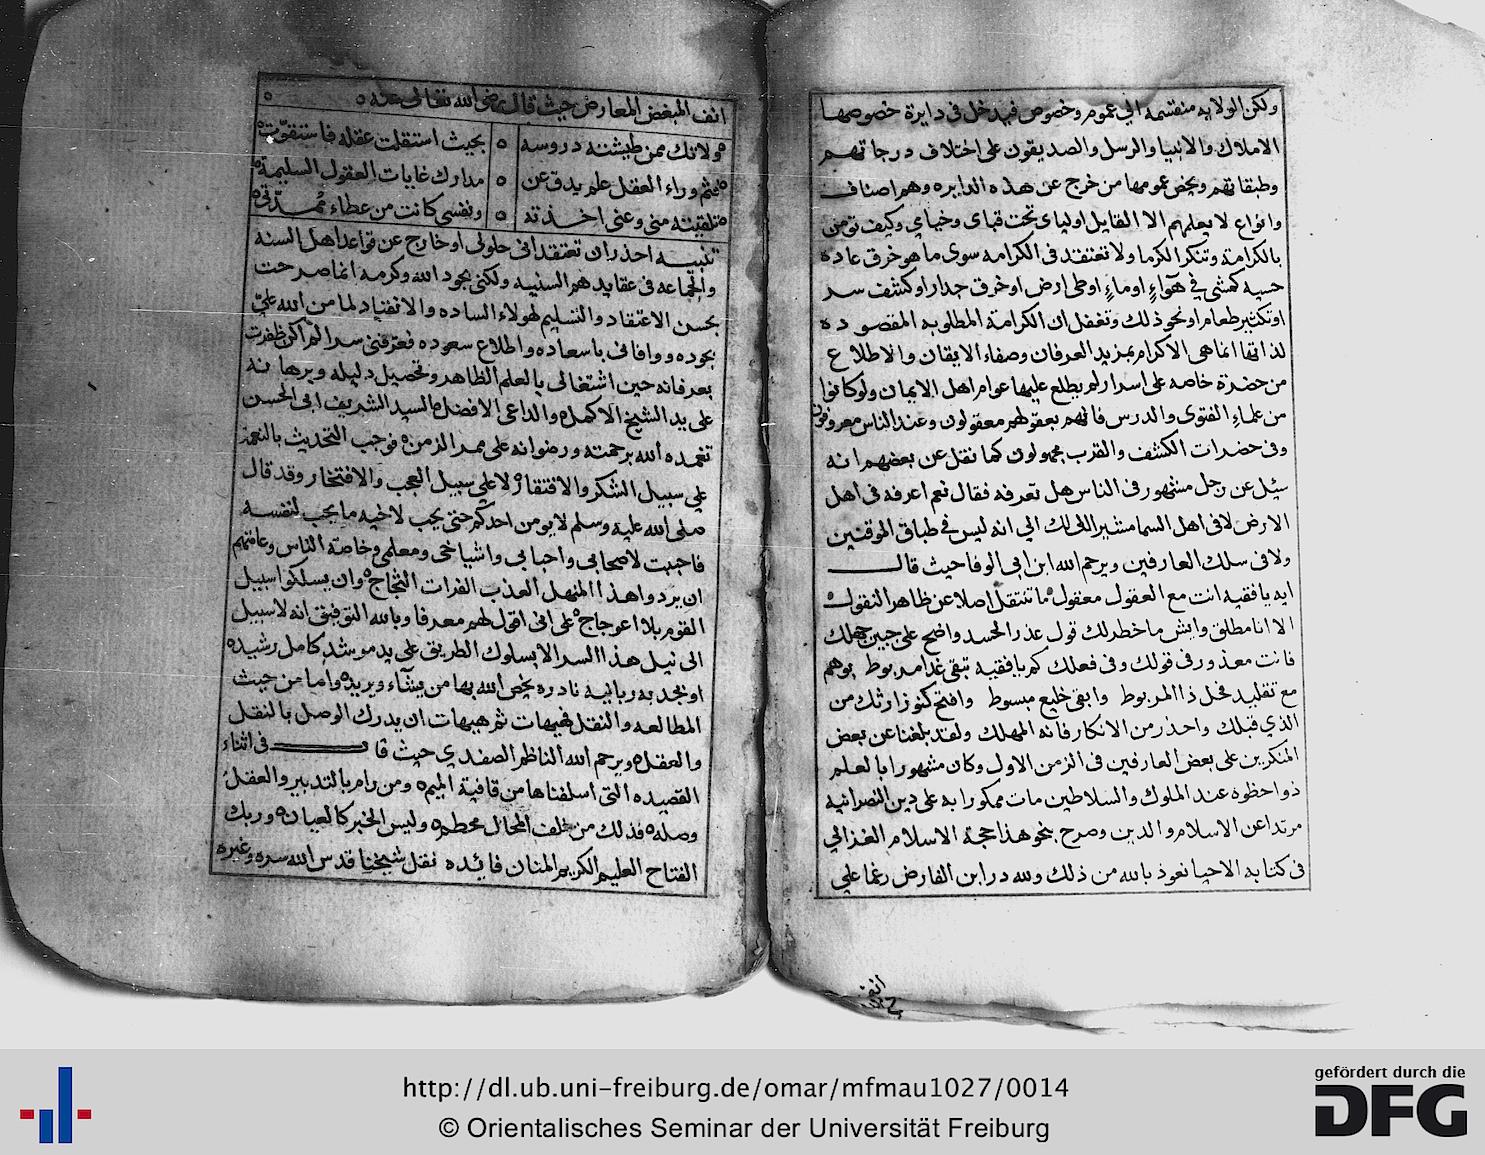 ولكن الولايه منقسمه الي عموم وخصوص فيدخل فى دايرة خصوصها
الاملاك والانبيا والرسل والصديقون على اختلاف درجاتهم
وطبقاتهم ويخص عمومها من خرج عن هذه الدايره وهم اصناف
وانواع لا يعلمهم الا القايل اولياى تحت قباى وخباي وكيف تومن
بالكرامة وتنكر الكرما ولا تعتقد فى الكرامه سوى ما هو خرق عاده
حسيه كمشي في هوآءٍ او ماءٍ او طى ارض او خرق جدار او كشف سر
او تكثير طعام او نحو ذلك وتغفل ان الكرامة المطلوبه المقصوده
لذاتها انما هى الاكرام بمزيد العرفان وصفاء الايقان والاطلاع
من حضرة خاصه على اسرار لم يطلع عليها عوام اهل الايمان ولو كانوا
من علماءِ الفتوى والدرس فانهم بعقولهم معقولون وعند الناس معروفون
وفى حضرات الكشف والقرب مجهولون كما نقل عن بعضهم انه
سئل عن رجل مشهور فى الناس هل تعرفه فقال نعم اعرفه فى اهل
الارض لا فى اهل السما مشيرا الى انه ليس في طباق الموقنين
ولا فى سلك العارفين ويرحم الله ابن ابى الوفا حيث قال
ايه يا فقيه انت مع العقول معقول ما تنتقل اصلا عن ظاهر النقول
الا انا مطلق وايش ما خطر لك قول عذر الحسد واضح على جبين جهلك
فانت معذور فى قولك وفى فعلك كم يا فقيه تبقى غدا مربوط بوهم
مع تقليد فخل ذا المربوط وابقى خليع مبسوط وافتح كنوز ارثك من
الذي قبلك واحذر من الانكار فانه المهلك ولقد بلغنا عن بعض
المنكرين على بعض العارفين فى الزمن الاول وكان مشهورا بالعلم
ذوا حظوه عند الملوك والسلاطين مات ممكورا به على دين النصرانيه
مرتدا عن الاسلام والدين وصرح بنحو هذا حجة الاسلام الغزالي
فى كتابه الاحيا نعوذ بالله من ذلك ولله در ابن الفارض رغما علي
انف
انف المبغض المعارض حيث قال رضى الله تعالى عنه
ولا تك ممن طيشته دروسه بحيث استقلت عقله فاستفزّت
فثم وراء العقل علم يدق عن مدارك غايات العقول السليمة
تلقيته منى وعنى اخذته ونفسى كانت من عطاء مُمِدّتى
تنبيه احذر ان تعتقد انى حلولى او خارج عن قواعد اهل السنه
والجماعه فى عقايدهم السنيه ولكنى بجود الله وكرمه انما صرحت
بحسن الاعتقاد والتسليم لهولاء الساده والانقياد لما من الله عليّ
بجوده ووافانى باسعاده واطلاع سعوده فعرفنى سرا لم اكن ظفرت
بعرفانه حين اشتغالى بالعلم الظاهر وتحصيل دليله وبرهانه
على يد الشيخ الاكمل والداعى الافضل السيد الشريف ابى الحسن
تغمده الله برحمته ورضوانه على ممر الزمن فوجب التحديث بالنعمة
على سبيل الشكر والافتقار لا على سبيل العجب والافتخار وقد قال
صلى الله عليه وسلم لا يومن احدكم حتى يحب لاخيه ما يحب لنفسه
فاحببت لاصحابى واحبابى واشياخى ومعلمى وخاصة الناس وعامتهم
ان يردوا هذا المنهل العذب الفرات الثجاج وان يسلكوا سبيل
القوم بلا اعوجاج على انى اقول لهم معرفا وبالله التوفيق انه لا سبيل
الى نيل هذا السر الا بسلوك الطريق على يد موشد كامل رشيد
او بجذبه ربانيه نادره يخص الله بها من يشآء ويريد واما من حيث
المطالعه والنقل فهيهات ثم هيهات ان يدرك الوصل بالنقل
والعقل ويرحم الله الناظم الصفدي حيث قال فى اثناء
القصيده التى اسلفناها من قافية الميم ومن رام بالتدبير والعقل
وصله فذلك من خلف المحال محطم وليس الخبر كالعيان وربك
الفتاح العليم الكريم المنان فائده نقل شيخنا قدس الله سره وغيره
http://dl.ub.uni-freiburg.de/omar/mfmau1027/0014
© Orientalisches Seminar der Universität Freiburg
gefördert durch die
DFG